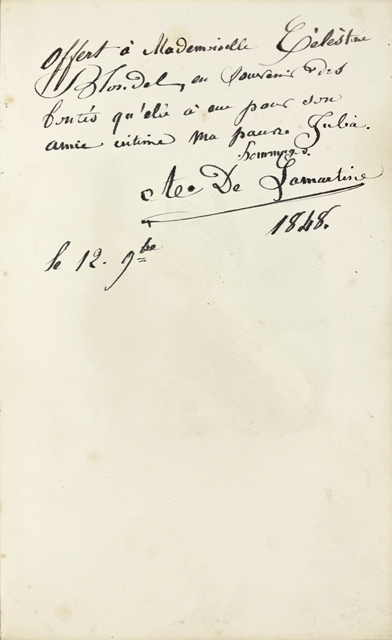 Offert à Mademoiselle Célèstine
Blondel, en Souvenir des
bontés qu'elle à eue pour son
amie intime Ma pauvre Julia.
hommages.
Ae. De Lamartine
1848.
le 12. 9bre